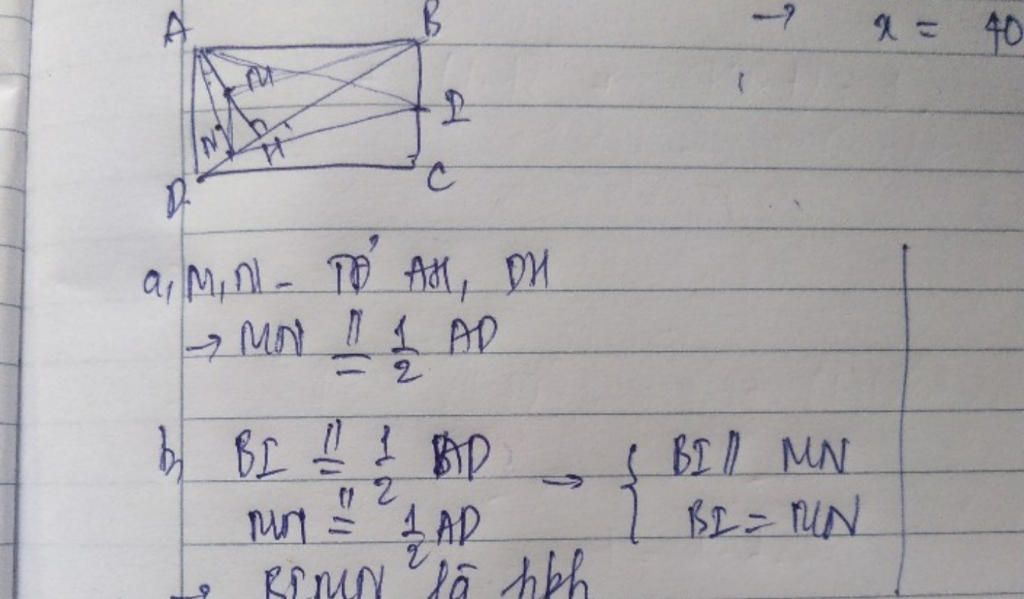 A B → x = 40
M
I
N H
D C
a, M, N - TĐ' AH, DH
→ MN // = 1/2 AD
b, BI // = 1/2 AD → { BI // MN
MN // = 1/2 AD BI = MN
→ BIMN là hbh